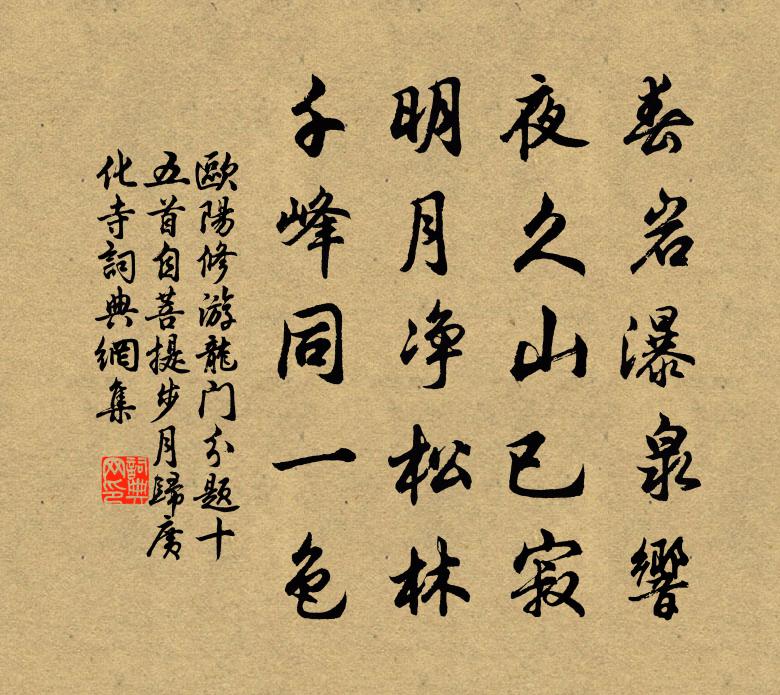 春岩瀑泉響
夜久山已寂
明月净松林
千峰同一色
歐陽修游龍门分题十
五首自菩提步月歸廣
化寺詞典網集
詞典网印